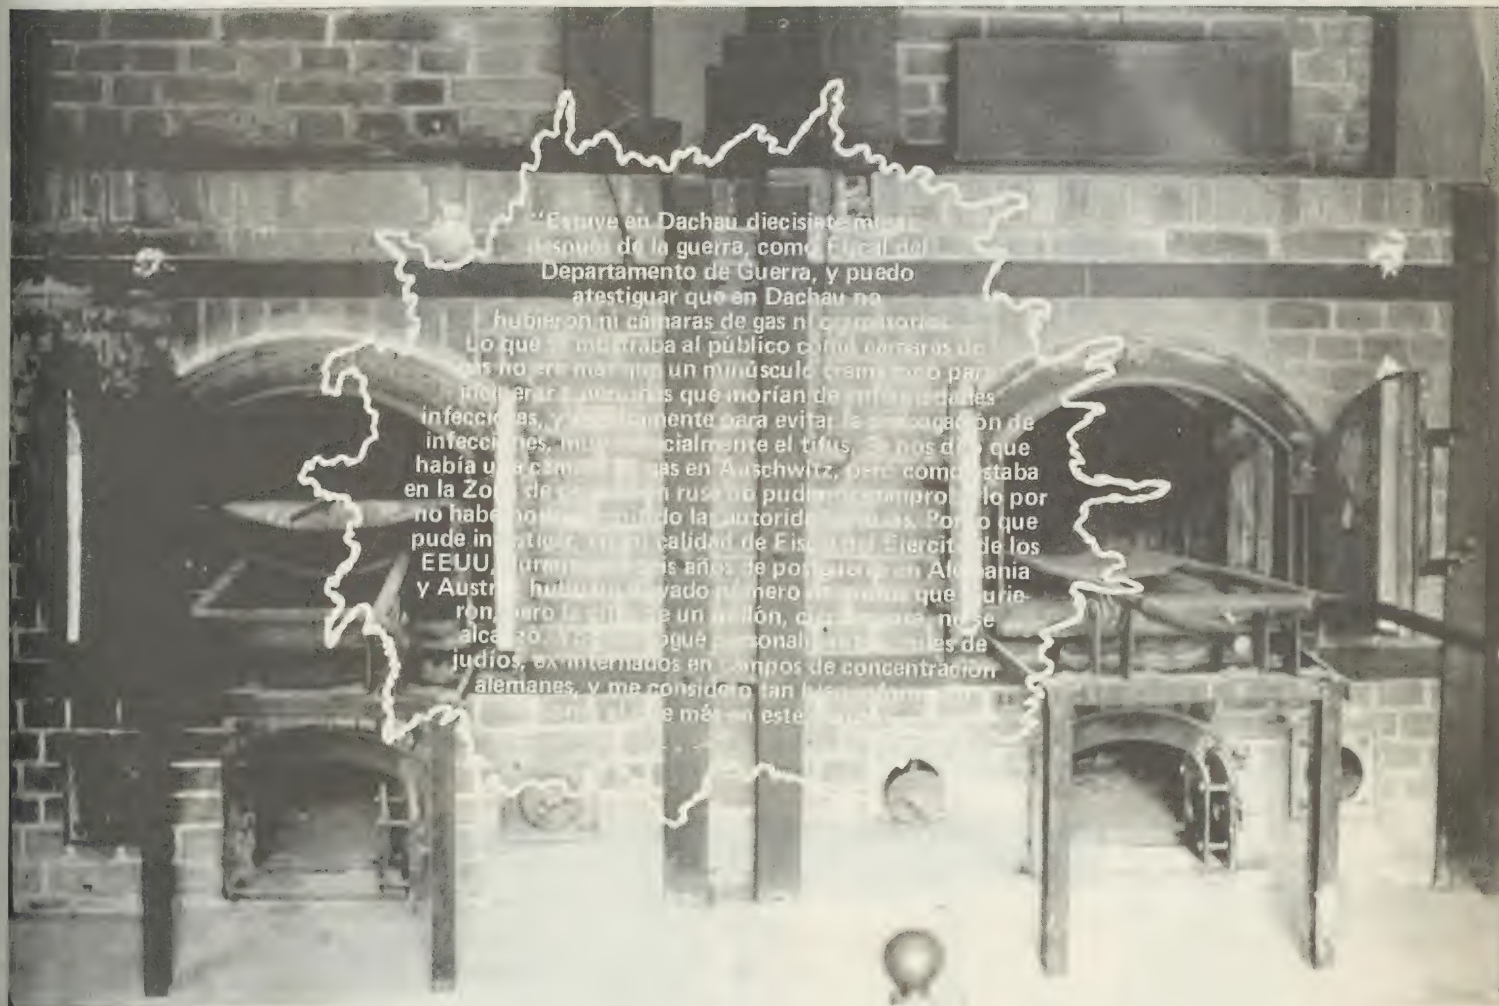 "Estuve en Dachau diecisiete meses
después de la guerra, como Fiscal del
Departamento de Guerra, y puedo
atestiguar que en Dachau no
hubieron ni cámaras de gas ni crematorios.
Lo que se mostraba al público como cámaras de
gas no era más que un minúsculo crematorio para
incinerar a personas que morían de enfermedades
infecciosas, y para evitar la propagación de
infecciones, muy especialmente el tifus. Se nos dijo que
había una cámara de gas en Auschwitz, pero como estaba
en la Zona de ocupación rusa no pudimos comprobarlo por
no habernos las autoridades rusas. Por lo que
pude investigar, en mi calidad de Fiscal del Ejercito de los
EEUU, durante seis años de postguerra en Alemania
y Austria, hubo un elevado número de judíos que murie-
ron, pero la cifra de un millón, no se
alcanzó. personalmente a miles de
judíos, ex-internados en campos de concentración
alemanes, y me considero tan bien informado
como el que más en este